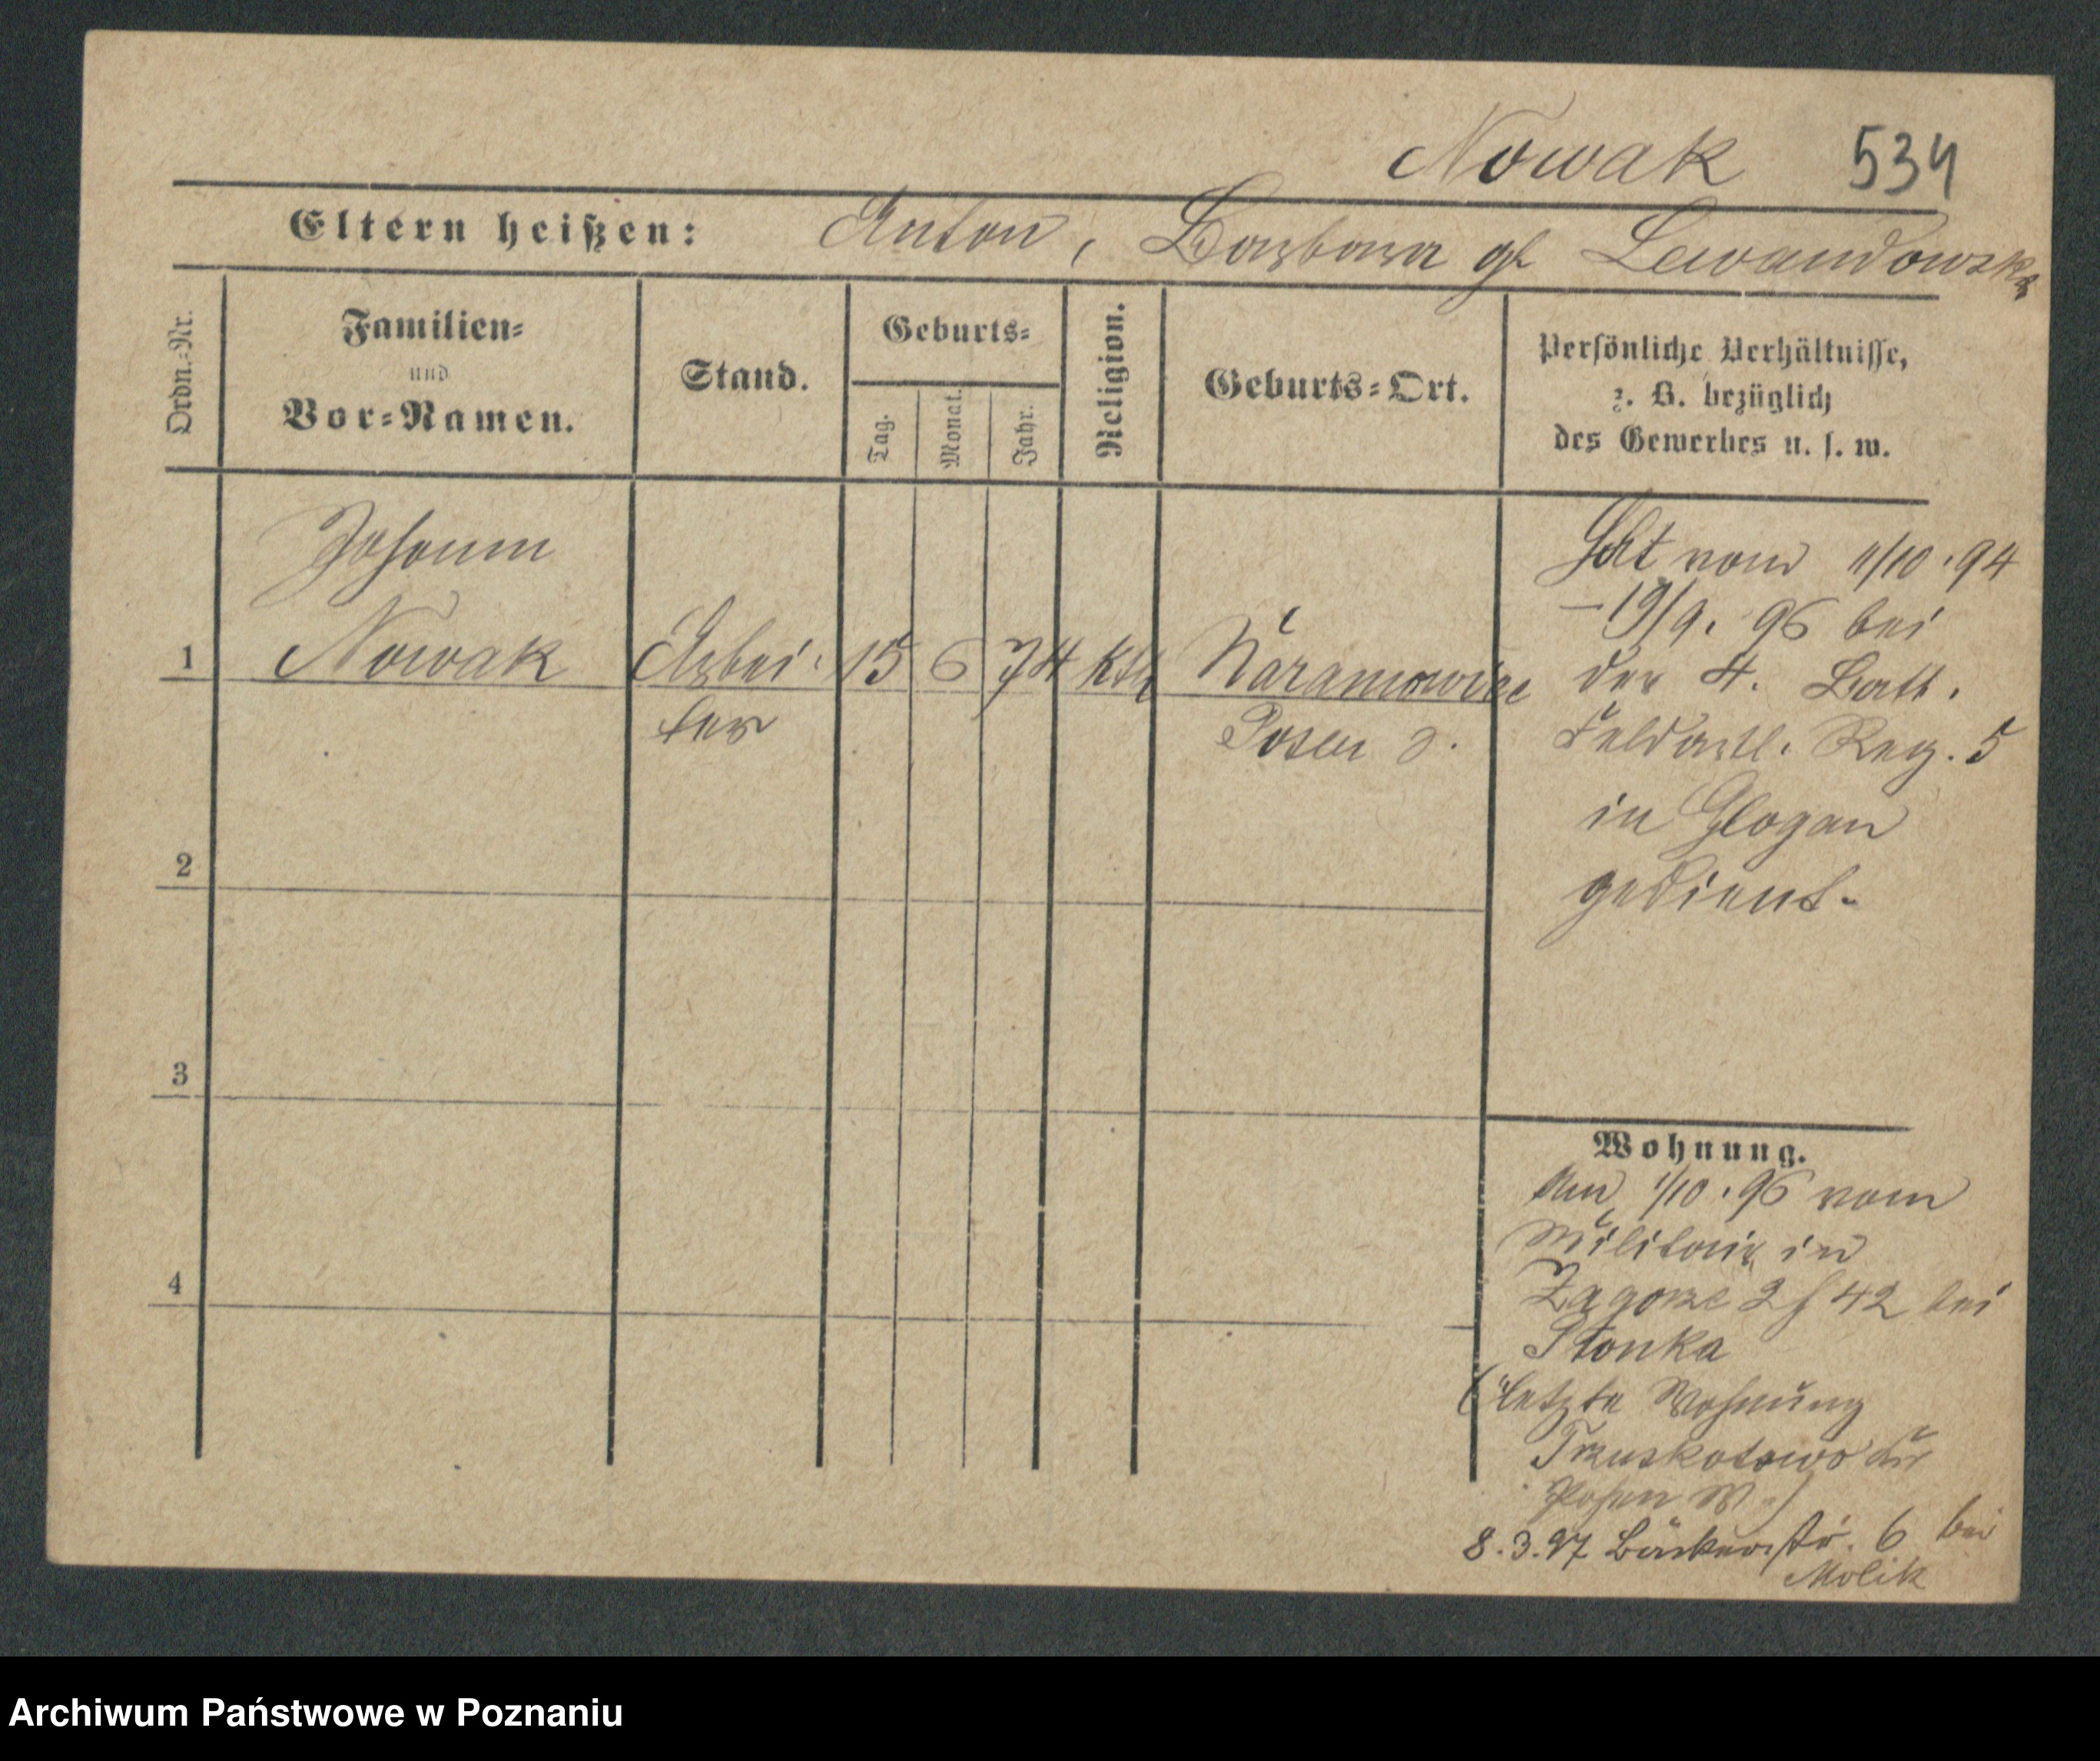 Nowak 534
Eltern heißen: Anton, Barbara gb Lewandowska
Ordn.=Nr.
Familien=
und
Vor=Namen.
Stand.
Geburts=
Tag.
Monat.
Jahr.
Religion.
Geburts=Ort.
Persönliche Verhältnisse,
z. B. bezüglich
des Gewerbes u. s. w.
Johann
1 Nowak Arbei- 15 6 74 kth Naramowice
ter Posen O.
2
3
4
Hat vom 11/10.94
– 19/9. 96 bei
der 4. Batt.
Feldartl. Reg. 5
in Glogau
gedient.
Wohnung.
Am 1/10.96 vom
Militair in
Zagorze 2 42 bei
Slonka
(letzte Wohnung
Truskotowo
Posen W.)
8.3.97 Bäckerstr. 6 bei
Molik
Archiwum Państwowe w Poznaniu